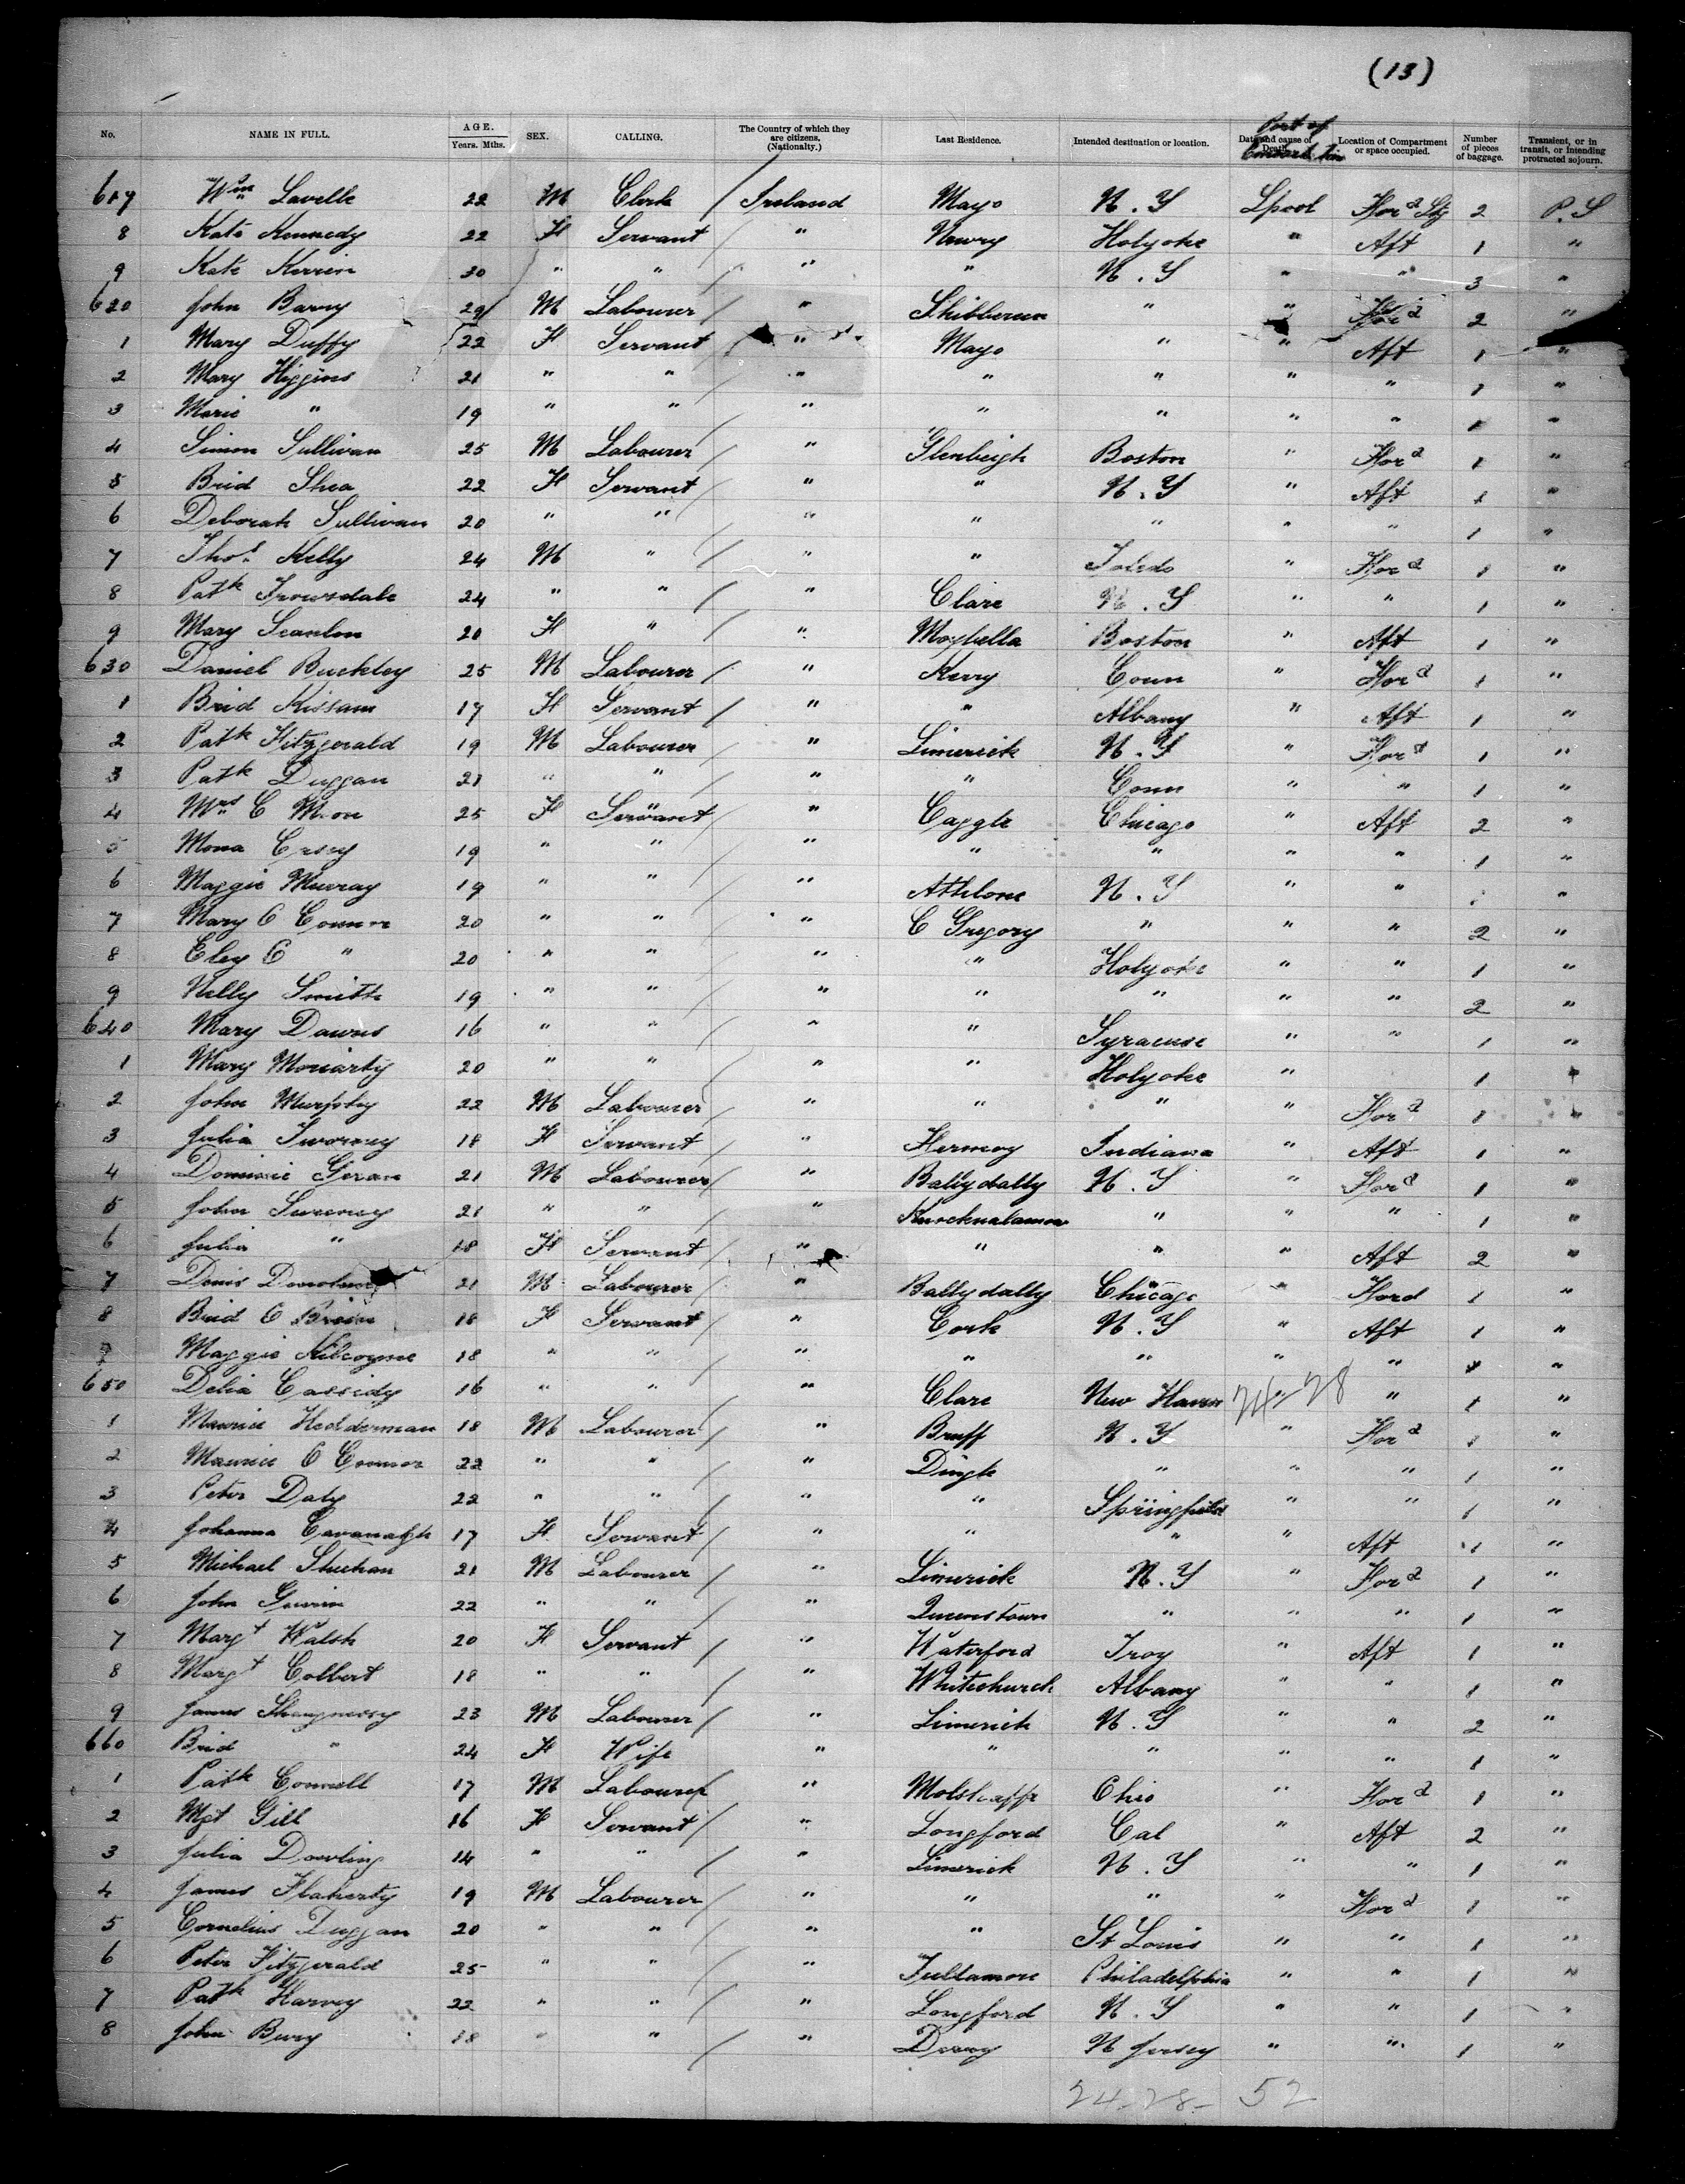 (13)
No. NAME IN FULL. AGE. Years. Mths. SEX. CALLING. The Country of which they are citizens. (Nationalty.) Last Residence. Intended destination or location. Date and cause of Death. Port of Location of Compartment or space occupied. Number of pieces of baggage. Transient, or in transit, or intending protracted sojourn.
617 Wm Lavelle 22 M Clerk / Ireland Mayo N.Y Lpool For'd Stg 2 P.S
8 Kate Kennedy 22 F Servant / " Newry Holyoke " Aft 1 "
9 Kate Kerrin 30 " " / " " N.Y " " 3 "
620 John Barry 29 M Labourer / " Skibbereen " " For'd 2 "
1 Mary Duffy 22 F Servant / " Mayo " " Aft 1 "
2 Mary Higgins 21 " " / " " " " " 1 "
3 Marie " 19 " " / " " " " " 1 "
4 Simon Sullivan 25 M Labourer / " Glenbeigh Boston " For'd 1 "
5 Brid Shea 22 F Servant / " " N.Y " Aft 1 "
6 Deborah Sullivan 20 " " / " " " " " 1 "
7 Thos Kelly 24 M " / " " Toledo " For'd 1 "
8 Patk 24 " " / " Clare N.Y " " 1 "
9 Mary Scanlon 20 F " / " Moybella Boston " Aft 1 "
630 Daniel Buckley 25 M Labourer / " Kerry Conn " For'd 1 "
1 Brid Kissam 17 F Servant / " " Albany " Aft 1 "
2 Patk Fitzgerald 19 M Labourer / " Limerick N.Y " For'd 1 "
3 Patk Duggan 21 " " / " " Conn " " 1 "
4 Mrs C 25 F Servant / " Caggle Chicago " Aft 2 "
5 Mona 19 " " / " " " " " 1 "
6 Maggie Murray 19 " " / " Athlone N.Y " " "
7 Mary O Connor 20 " " / " C Gregory " " " 2 "
8 O " 20 " " / " " Holyoke " " 1 "
9 Nelly Smith 19 " " / " " " " " 2 "
640 Mary Dawns 16 " " / " " Syracuse " " 1 "
1 Mary Moriarty 20 " " / " " Holyoke " 1 "
2 John Murphy 22 M Labourer / " " " " For'd 1 "
3 Julia Twomey 18 F Servant / " Fermoy Indiana " Aft 1 "
4 Dominic Geran 21 M Labourer / " Ballydally N.Y " For'd 1 "
5 John Sweeney 21 " " / " " " " 1 "
6 Julia " 18 F Servant / " " " " Aft 2 "
7 Denis 21 M Labourer / " Ballydally Chicago " Ford 1 "
8 Brid O Brien 18 F Servant / " Cork N.Y " Aft 1 "
9 Maggie Kilcoyne 18 " " / " " " " " "
650 Delia Cassidy 16 " " / " Clare New Haven 24-28 " " 1 "
1 Maurice Hedderman 18 M Labourer / " Bruff N.Y " For'd 1 "
2 Maurice O Connor 22 " " / " Dingle " " " 1 "
3 Peter Daly 22 " " / " " Springfield " " 1 "
4 Johanna Cavanagh 17 F Servant / " " " " Aft 1 "
5 Michael Sheehan 21 M Labourer / " Limerick N.Y " For'd 1 "
6 John 22 " " / " Queenstown " " " 1 "
7 Margt Walsh 20 F Servant / " Waterford Troy " Aft 1 "
8 Margt Colbert 18 " " / " Whitechurch Albany " " 1 "
9 James Shaugnessy 23 M Labourer / " Limerick N.Y " " 2 "
660 Brid " 24 F Wife " " " " " 1 "
1 Patk Connell 17 M Labourer " Ohio " For'd 1 "
2 Mgt Gill 16 F Servant / " Longford Cal " Aft 2 "
3 Julia Dowling 14 " " / " Limerick N.Y " " 1 "
4 James Flaherty 19 M Labourer / " " " " For'd 1 "
5 Cornelius Duggan 20 " " / " " St Louis " " 1 "
6 Peter Fitzgerald 25 " " / " Tullamore Philadelphia " " 1 "
7 Patk Harvey 22 " " / " Longford N.Y " " 1 "
8 John Bury 18 " " / " Derry N Jersey " " 1 "
24-28- 52